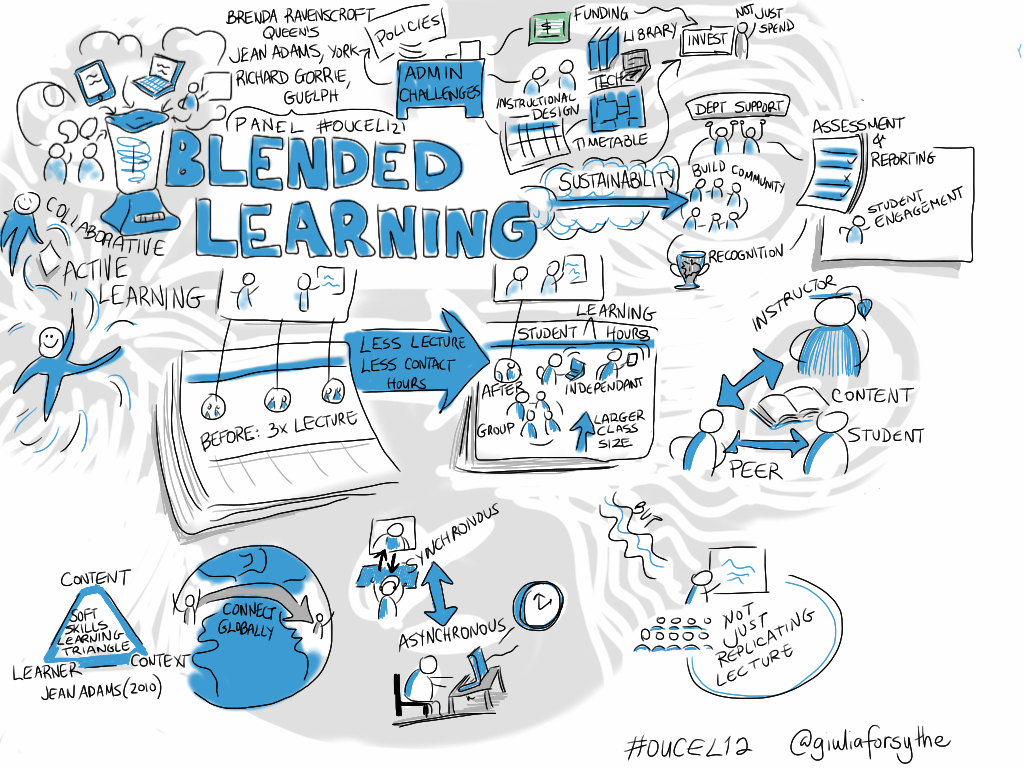 BRENDA RAVENSCROFT
QUEEN'S
JEAN ADAMS, YORK
RICHARD GORRIE,
GUELPH
PANEL #OUCEL12
BLENDED
LEARNING
POLICIES
ADMIN
CHALLENGES
FUNDING
LIBRARY
TECH
INSTRUCTIONAL
DESIGN
TIMETABLE
INVEST
NOT JUST
SPEND
SUSTAINABILITY
DEPT SUPPORT
BUILD COMMUNITY
RECOGNITION
ASSESSMENT
&
REPORTING
STUDENT
ENGAGEMENT
COLLABORATIVE
ACTIVE
LEARNING
BEFORE: 3x LECTURE
LESS LECTURE
LESS CONTACT
HOURS
LEARNING
STUDENT ^ HOURS
AFTER
INDEPENDANT
GROUP
LARGER
CLASS
SIZE
INSTRUCTOR
CONTENT
STUDENT
PEER
CONTENT
SOFT
SKILLS
LEARNING
TRIANGLE
LEARNER
CONTEXT
JEAN ADAMS (2010)
CONNECT
GLOBALLY
SYNCHRONOUS
ASYNCHRONOUS
BUT
NOT
JUST
REPLICATING
LECTURE
#OUCEL12 @giuliaforsythe